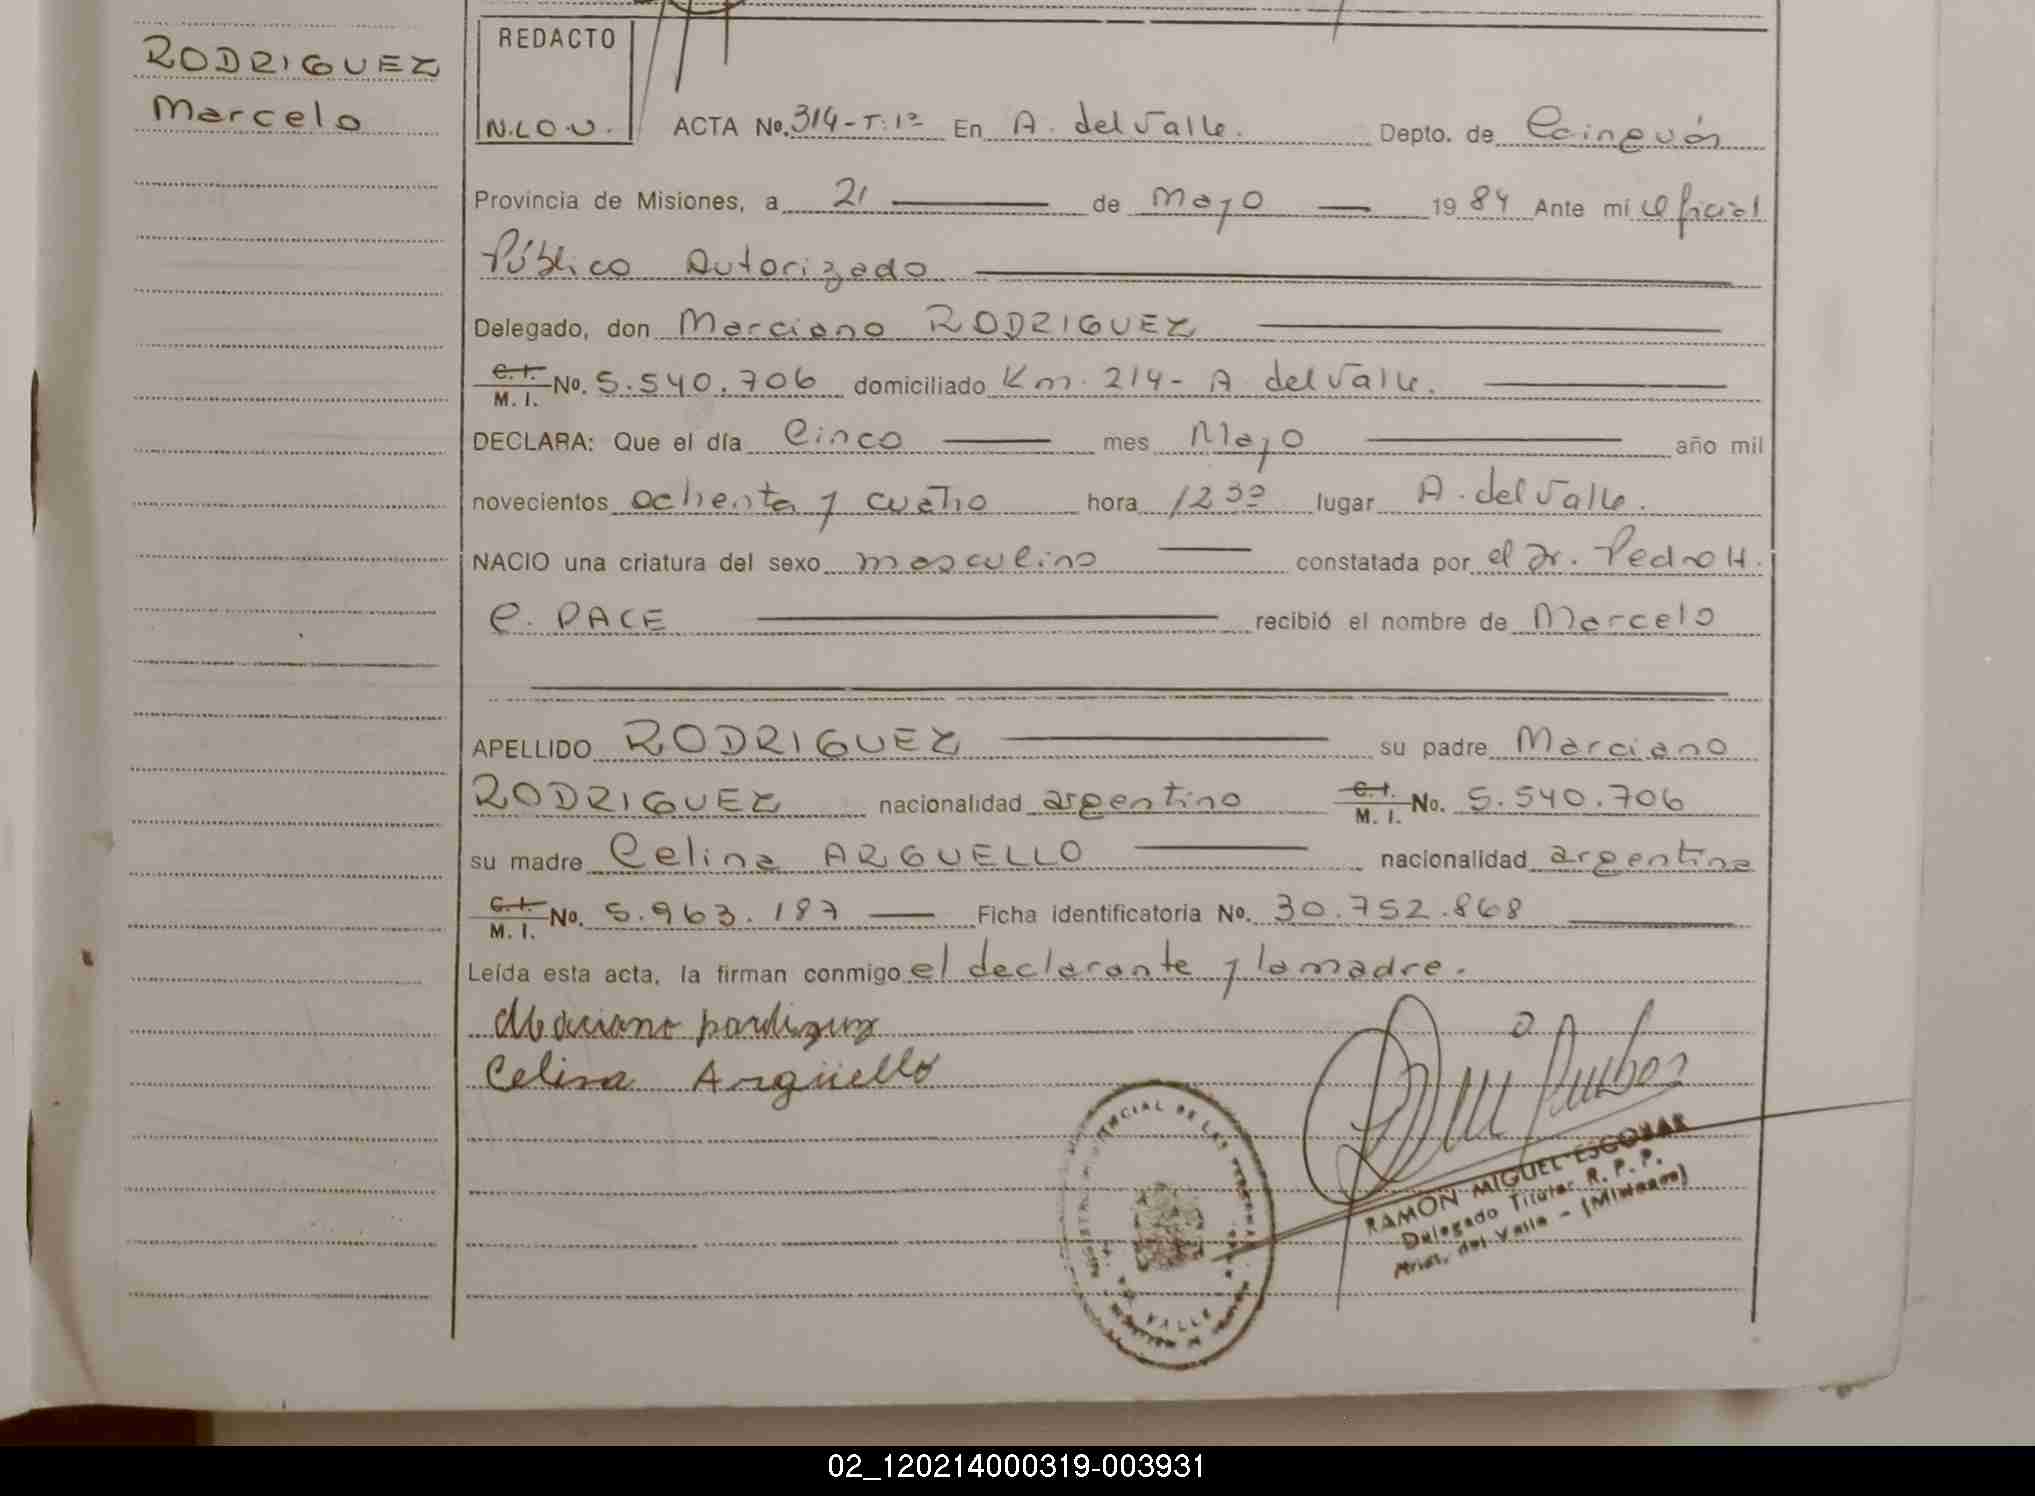 RODRIGUEZ
Marcelo
REDACTO
N.L.O.V.
ACTA No. 314-T:1º En A. del Valle. Depto. de Cainguás
Provincia de Misiones, a 21 de Mayo 1984 Ante mí Oficial
Público Autorizado
Delegado, don Marciano RODRIGUEZ
C.I. M. I. No. 5.540.706 domiciliado Km. 214- A. del Valle.
DECLARA: Que el día Cinco mes Mayo año mil
novecientos ochenta y cuatro hora 12 30 lugar A. del Valle.
NACIO una criatura del sexo masculino constatada por el Dr. Pedro H.
C. PACE recibió el nombre de Marcelo
APELLIDO RODRIGUEZ su padre Marciano
RODRIGUEZ nacionalidad argentino C.I. M. I. No. 5.540.706
su madre Celina ARGUELLO nacionalidad argentina
C.I. M. I. No. 5.963.187 Ficha identificatoria No. 30.752.868
Leída esta acta, la firman conmigo el declarante y la madre.
Celina Argüello
RAMON MIGUEL ESCOBAR
Delegado Titular R. P. P.
Arist. del Valle - (Misiones)
02_120214000319-003931